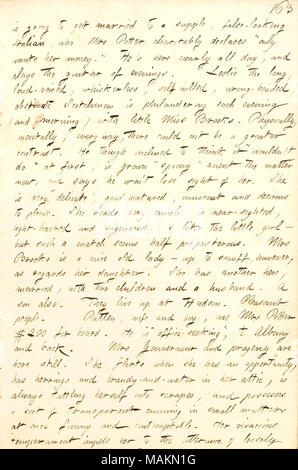 163
is going to get married to a supple, false-looking
Italian, who Mrs Potter charitably declares "only
wants her money." He's here nearly all day, and
plays the guitar of evenings. Leslie the long,
loud-voiced, whiskerless, self willed, wrong-headed
obstinate Scotchman is philandering each evening
(and morning) with little Miss Brooks. Physically,
mentally, every way there could not be a greater
contrast. He though inclined to think it "wouldn't
do" at first, is grown "spooney" anent the matter
now, and says he won't lose sight of her. She
is very "delicate", good natured, innocent and desirous
to please. She reads very much, is near-sighted,
light-haired and ingenuous. I like the little girl —
but such a match seems half preposterous. Mrs
Brooks is a nice old lady — up to snuff, however,
as regards her daughter. She has another here,
married, with two children and a husband. A
son also. They live up at Hudson. Pleasant
people. Patten, wife and boy, owe Mrs Potter
$200 for board. He is "office seeking", to Albany
and back. Mrs Gouverneur and progeny are
here still. She flirts when she has an opportunity,
has herrings and brandy-and-water in her attic, is
always tattling herself into scrapes, and possesses
a sort of transparent cunning in small matters
at once funny and contemptible. Her vivacious
temperament impels her to the utterance of loosely
alamy
MAKN1G